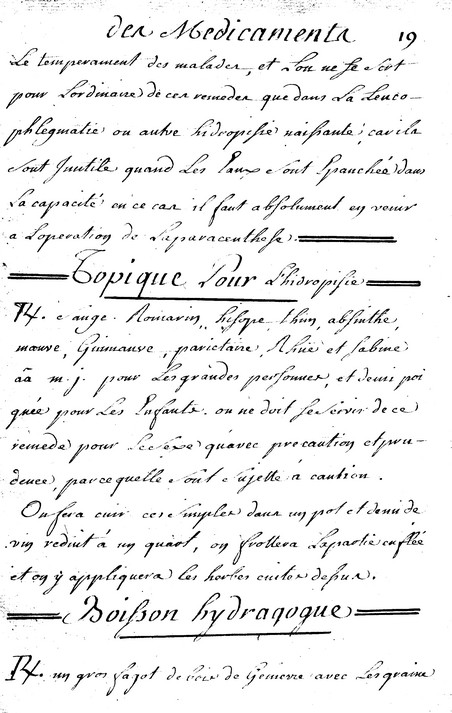 des Medicaments 19
Le temperament des malades, et L'on ne se sert
pour L'ordinaire de ces remedes que dans La Leuco-
phlegmatie ou autre hidropisie naissante; car ils
sont Jnutile quand Les Eaux sont Epanchée dans
La capacité en ce cas il faut absolument en venir
a L'operation de La paracenthese.
Topique Pour L'hidropisie
R. Romarin, hisope, thim, absinthe,
mauve, Guimauve, parietaire, Rhüe et Sabine
aa m. j. pour Les grandes personnes, et demi poi
gnée pour Les Enfants. on ne doit se servir de ce
remede pour Le sexe qu'avec precaution et pru-
dence, parce quelle sont sujette à caution.
On fera cuir ces simples dans un pot et demi de
vin reduit à un quart, on frottera La partie enflée
et on y appliquera les herbes cuites dessus.
Boisson hydragogue
R. un gros fagot de bois de Genievre avec Les graine